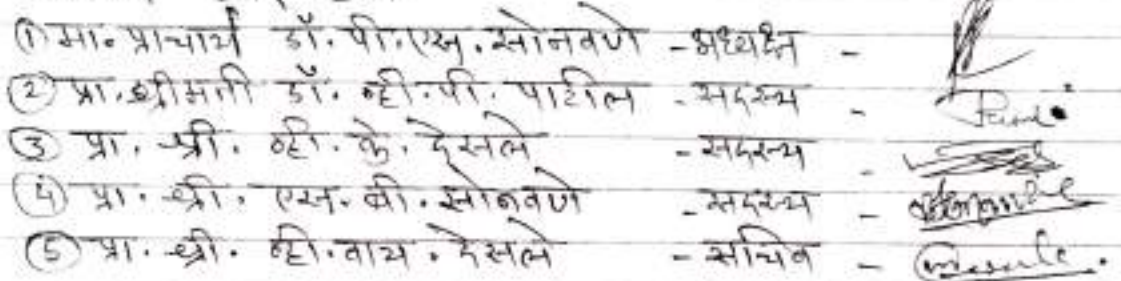 ① मा. प्राचार्य डॉ. पी.एस. सोनवणे - अध्यक्ष -
② प्रा. श्रीमती डॉ. व्ही.पी. पाटील - सदस्य -
③ प्रा. श्री. व्ही. के. देसले - सदस्य -
④ प्रा. श्री. एस. बी. सोनवणे - सदस्य -
⑤ प्रा. श्री. व्ही. वाय. देसले - सचिव -